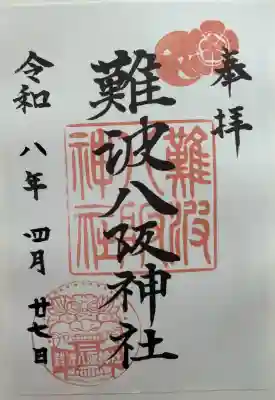 奉拝
難波八阪神社
令和八年四月廿七日
難波
八阪
神社